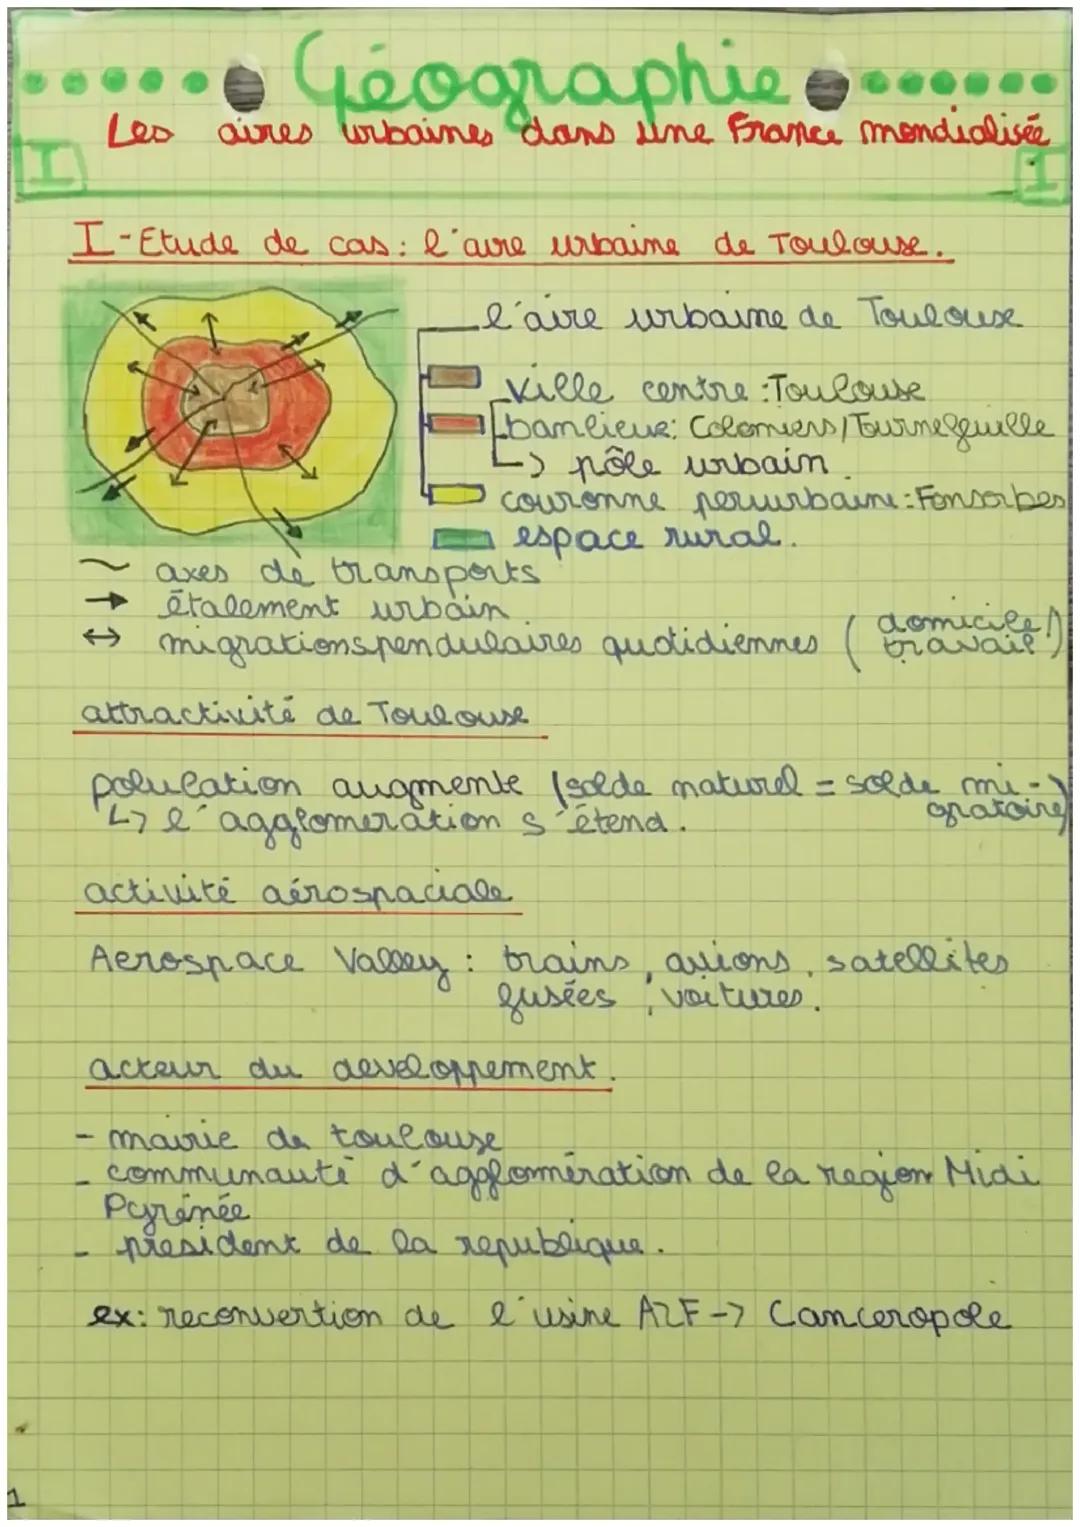 Géographie
Les aires urbaines dans une France mondialisée
I
1
I-Etude de cas: l'aire urbaine de Toulouse.
l'aire urbaine de Toulouse
ville centre: Toulouse
banlieue: Colomiers/Tournefeuille
↳ pôle urbain
couronne periurbaine: Fonsorbes
espace rural.
~ axes de transports
→ étalement urbain
↔ migrations pendulaires quotidiennes (domicile/travail)
attractivité de Toulouse
population augmente (solde naturel = solde migratoire)
↳ l'agglomeration s'étend.
activité aérospaciale
Aerospace Valley: trains, avions, satellites
fusées, voitures.
acteur du developpement.
- mairie de toulouse
- communauté d'agglomération de la region Midi
Pyrénée
- president de la republique.
ex: reconvertion de l'usine AZF → Canceropole
1